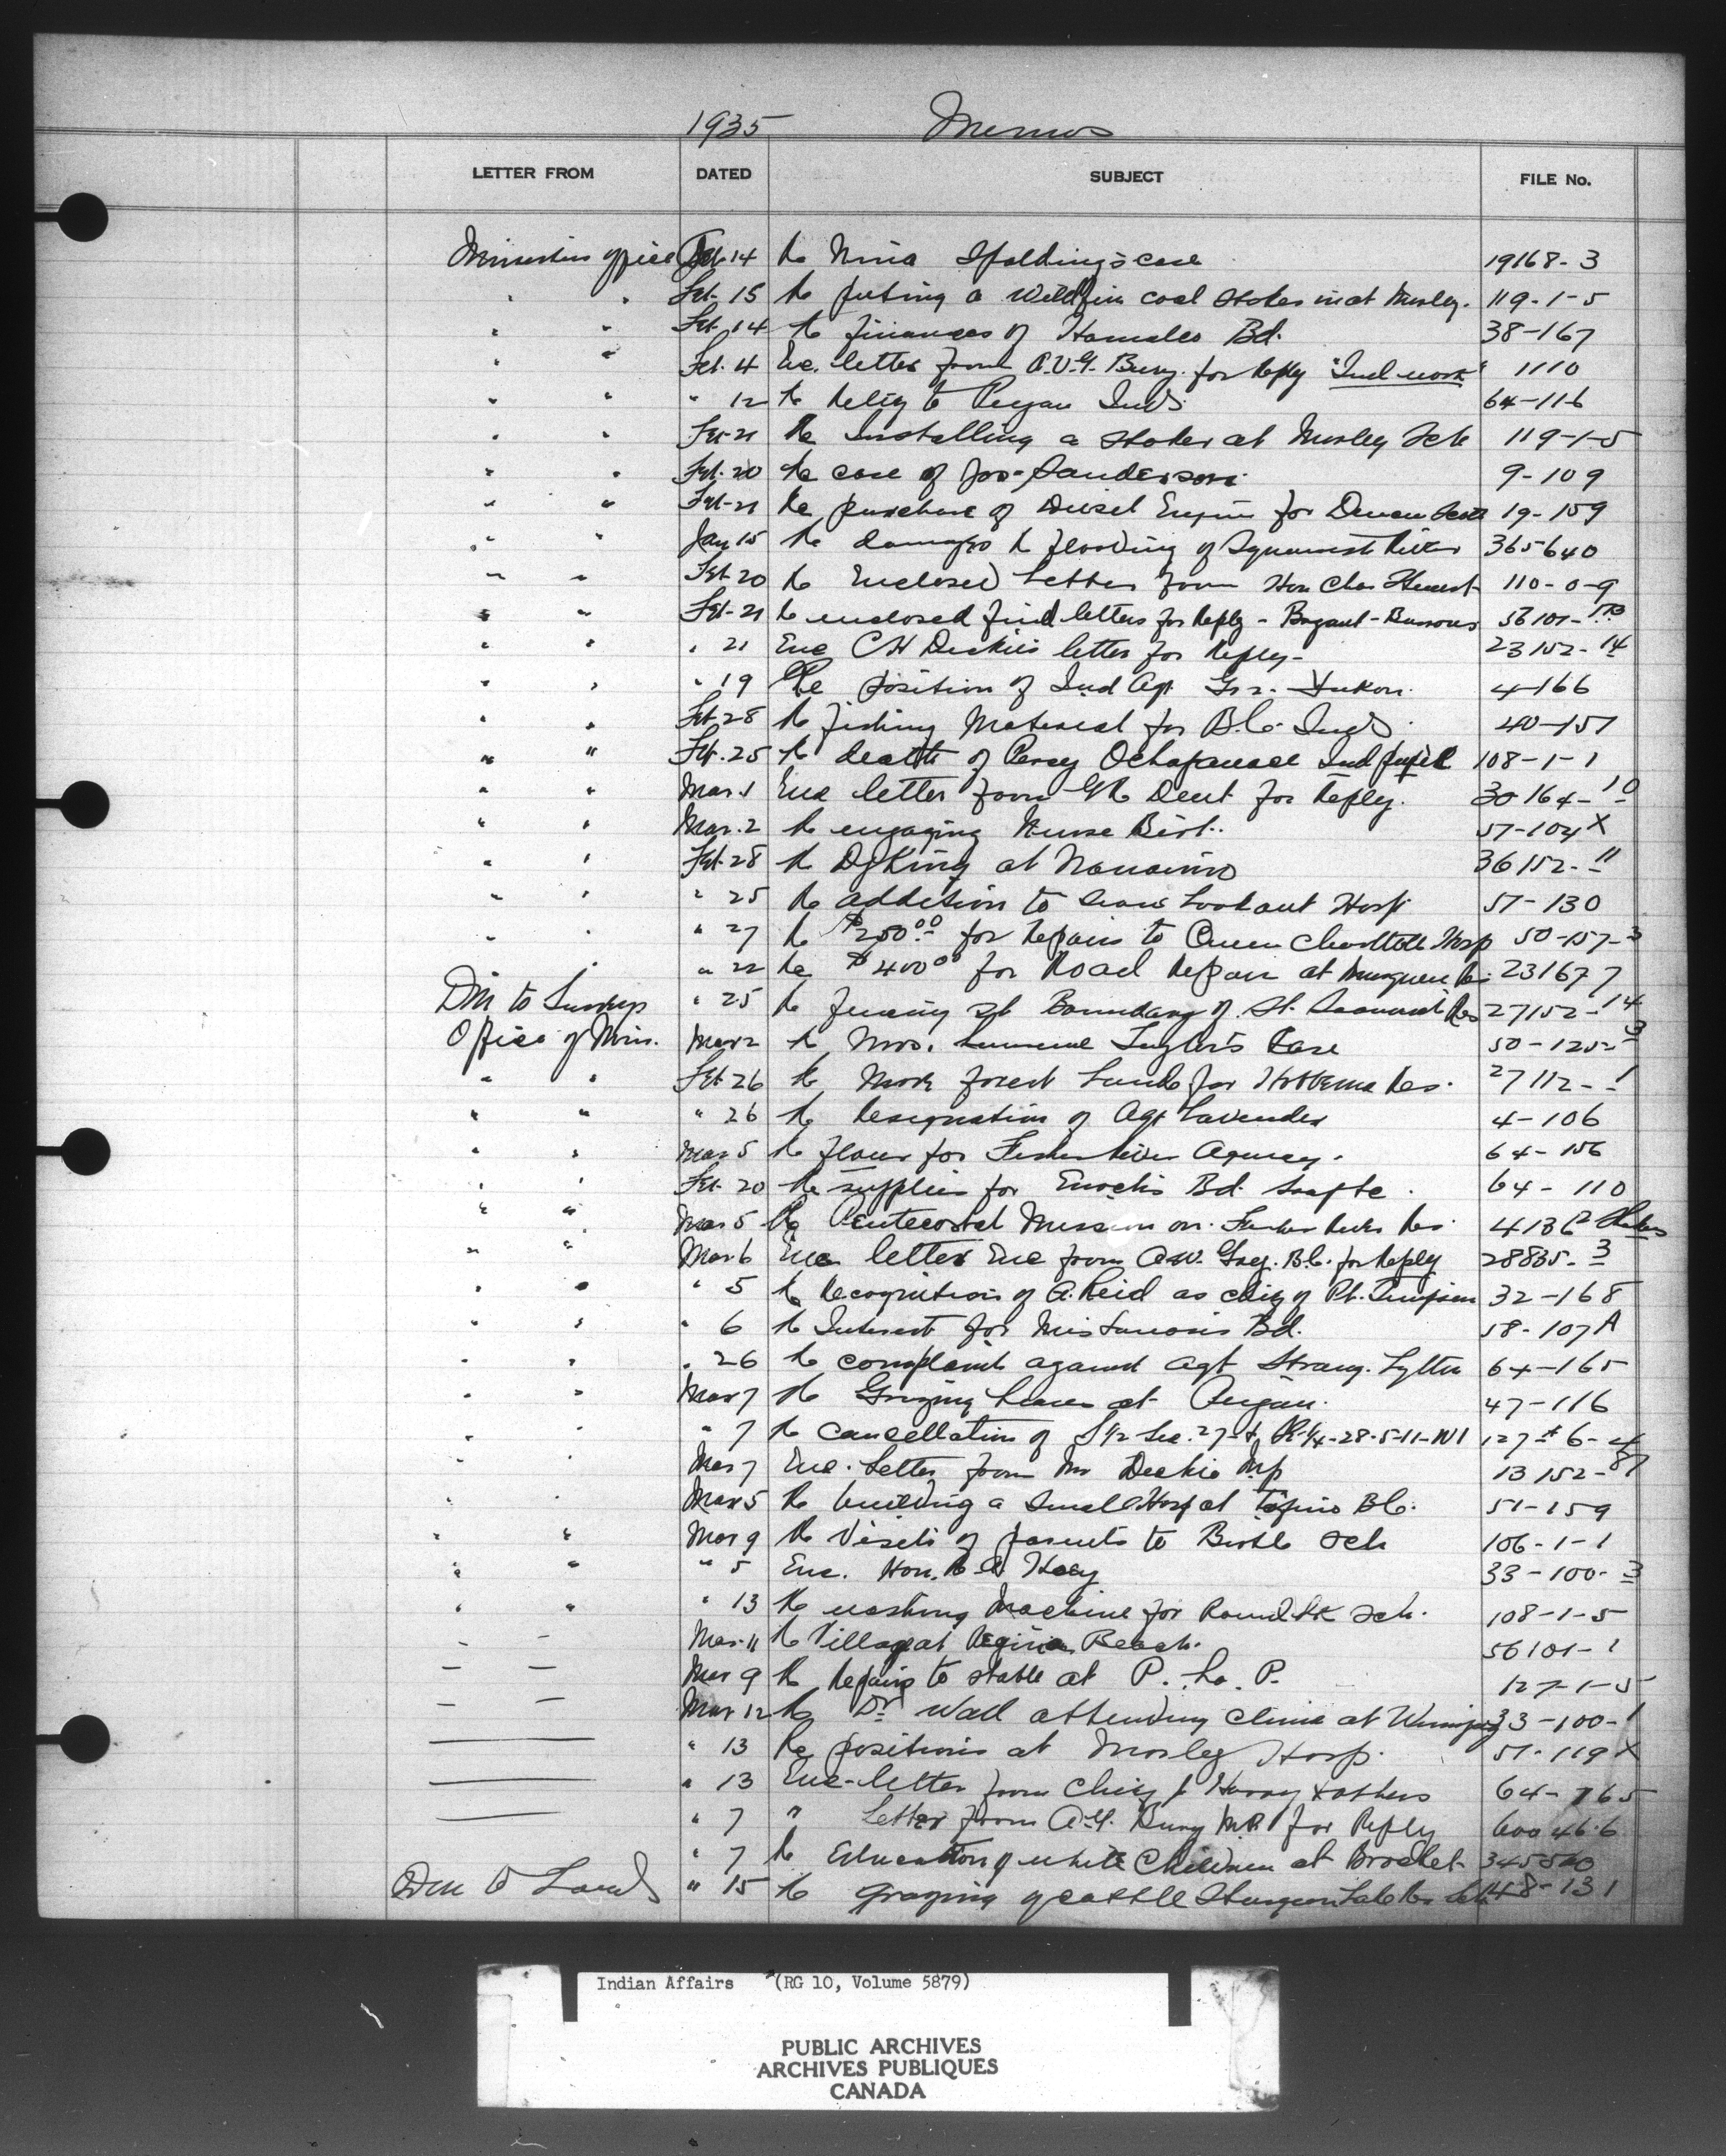 1935 Memos
LETTER FROM DATED SUBJECT FILE No.
Ministers office Feb 14 Re Nina Spalding's case 19168-3
" " Feb. 15 Re putting a Wildfire coal stoker in at Morley. 119-1-5
" " Feb 14 Re finances of Bd. 38-167
" " Feb. 4 Enc. letter from for Reply "Ind work" 1110
" " " 12 Re Relief to Peigan Inds 64-116
" " Feb-21 Re Installing a stoker at Morley Sch 119-1-5
" " Feb. 20 Re case of Jos-Sanderson. 9-109
" " Feb-21 Re purchase of Diesel Engine for 19-159
" " Jan 15 Re damages Re flooding of Squamish River 365640
" " Feb-20 Re Enclosed Letter from Hon Chas Stewart 110-0-9
" " Feb-21 Re enclosed find letters for Reply - Bryant - Burrows 56101-
" " " 21 Enc C H Dickie's letter for Reply- 23152-14
" " " 19 Re position of Ind Agt Yukon. 4-166
" " Feb-28 Re fishing Material for B.C. Inds. 40-157
" " Feb. 25 Re death of Percy Ochapowace Ind pupil 108-1-1
" " Mar 1 Enc letter from Dent for Reply. 30164-10
" " Mar. 2 Re engaging Nurse 57-104X
" " Feb-28 Re Dyking at Nanaimo 36152-11
" " " 25 Re addition to Sioux Lookout Hosp 57-130
" " " 27 Re $250.00 for Repairs to Queen Charlotte Hosp 50-157-3
" " 22 Re $400.00 for Road Repair at 23167 7
Dm to Surveys " 25 Re fencing Boundary of Res 27152-14
Office of Min. Mar 2 Re Mrs. Case 50-125-3
" " Feb 26 Re More forest Lands for Hobbema Res. 27112-1
" " " 26 Re Resignation of Agt Lavender 4-106
" " Mar 5 Re flour for Fisher River Agency. 64-156
" " Feb. 20 Re supplies for Enoch's Bd. 64-110
" " Mar 5 Re Pentecostal Mission on Fisher River Res. 4136
" " Mar 6 Enc letter Enc from A.W. B.C. for Reply 28835-3
" " " 5 Re Recognition of A. Reid as chief of Pt. Simpson 32-168
" " " 6 Re Interest for Mistawasis Bd. 58-107A
" " " 26 Re complaint against Agt Strang. Lytton 64-165
" " Mar 7 Re Grazing Leases at Peigan. 47-116
" " " 7 Re Cancellation of S½ Sec. 27- 28-5-11-W1 127-6-4
" " Mar 7 Enc. Letter from Mr Dickie M.P. 13152-87
" " Mar 5 Re building a Small Hosp at Tofino B.C. 51-159
" " Mar 9 Re Visits of parents to Birtle Sch 106-1-1
" " " 5 Enc. Hon. R A Hoey 33-100-3
" " " 13 Re washing Machine for Round Lk Sch. 108-1-5
— — Mar. 11 Re Village at Regina Beach. 56101-1
— — Mar 9 Re Repairs to stable at P. La. P. 127-1-5
— — Mar 12 Re Dr Wall attending clinic at Winnipeg 33-100-1
—— " 13 Re positions at Morley Hosp. 57-119X
—— " 13 Enc-letter from Chief J Harry & others 64-165
—— " 7 " Letter from M.P. for Reply 600 46.6
" 7 Re Education of white Children at Brochet 345
Dm to Lands " 15 Re Grazing of cattle Sturgeon Lake Res 48-131
Indian Affairs (RG 10, Volume 5879)
PUBLIC ARCHIVES
ARCHIVES PUBLIQUES
CANADA